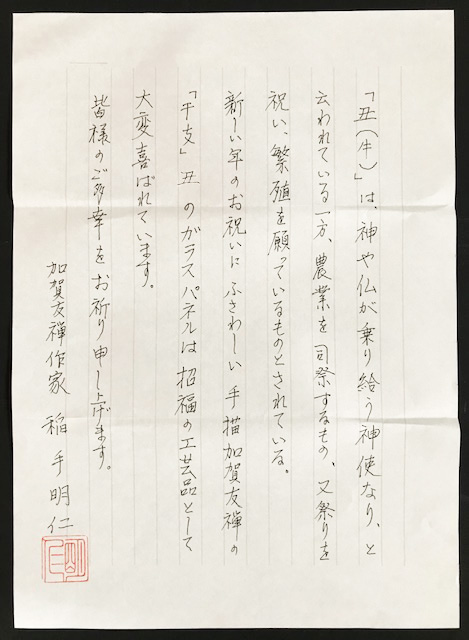 「丑(牛)」は、神や仏が乗り給う神使なり、と
云われている一方、農業を司祭するもの、又祭りを
祝い、繁殖を願っているものとされている。
新しい年のお祝いにふさわしい手描加賀友禅の
「干支」丑のガラスパネルは招福の工芸品として
大変喜ばれています。
皆様のご多幸をお祈り申し上げます。
加賀友禅作家 稲手明仁